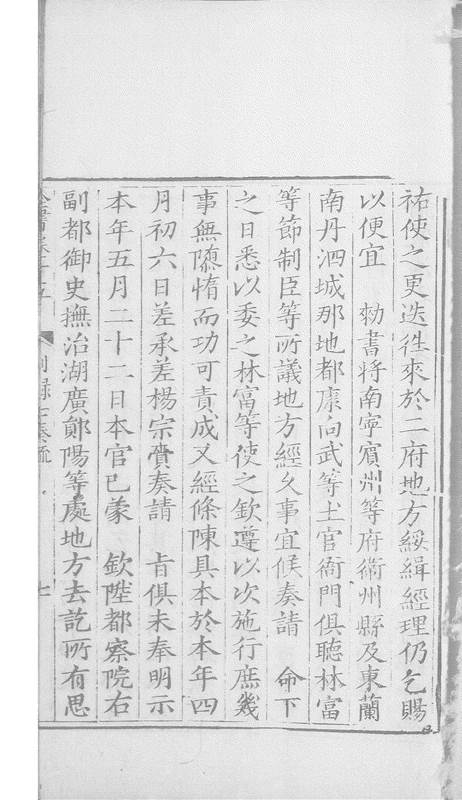 祐使之更迭徃來於二府地方綏緝經理仍乞賜
以便宜　勑書將南寧賓州等府衛州縣及東蘭
南丹泗城那地都康向武等土官衙門俱聽林富
等節制臣等所議地方經久事宜候奏請　命下
之日悉以委之林富等使之欽遵以次施行庶幾
事無隳惰而功可責成又經條陳具本於本年四
月初六日差承差楊宗賫奏請　旨俱未奉明示
本年五月二十二日本官已蒙　欽陞都察院右
副都御史撫治湖廣鄖陽等處地方去訖所有思
別錄七奏疏
七